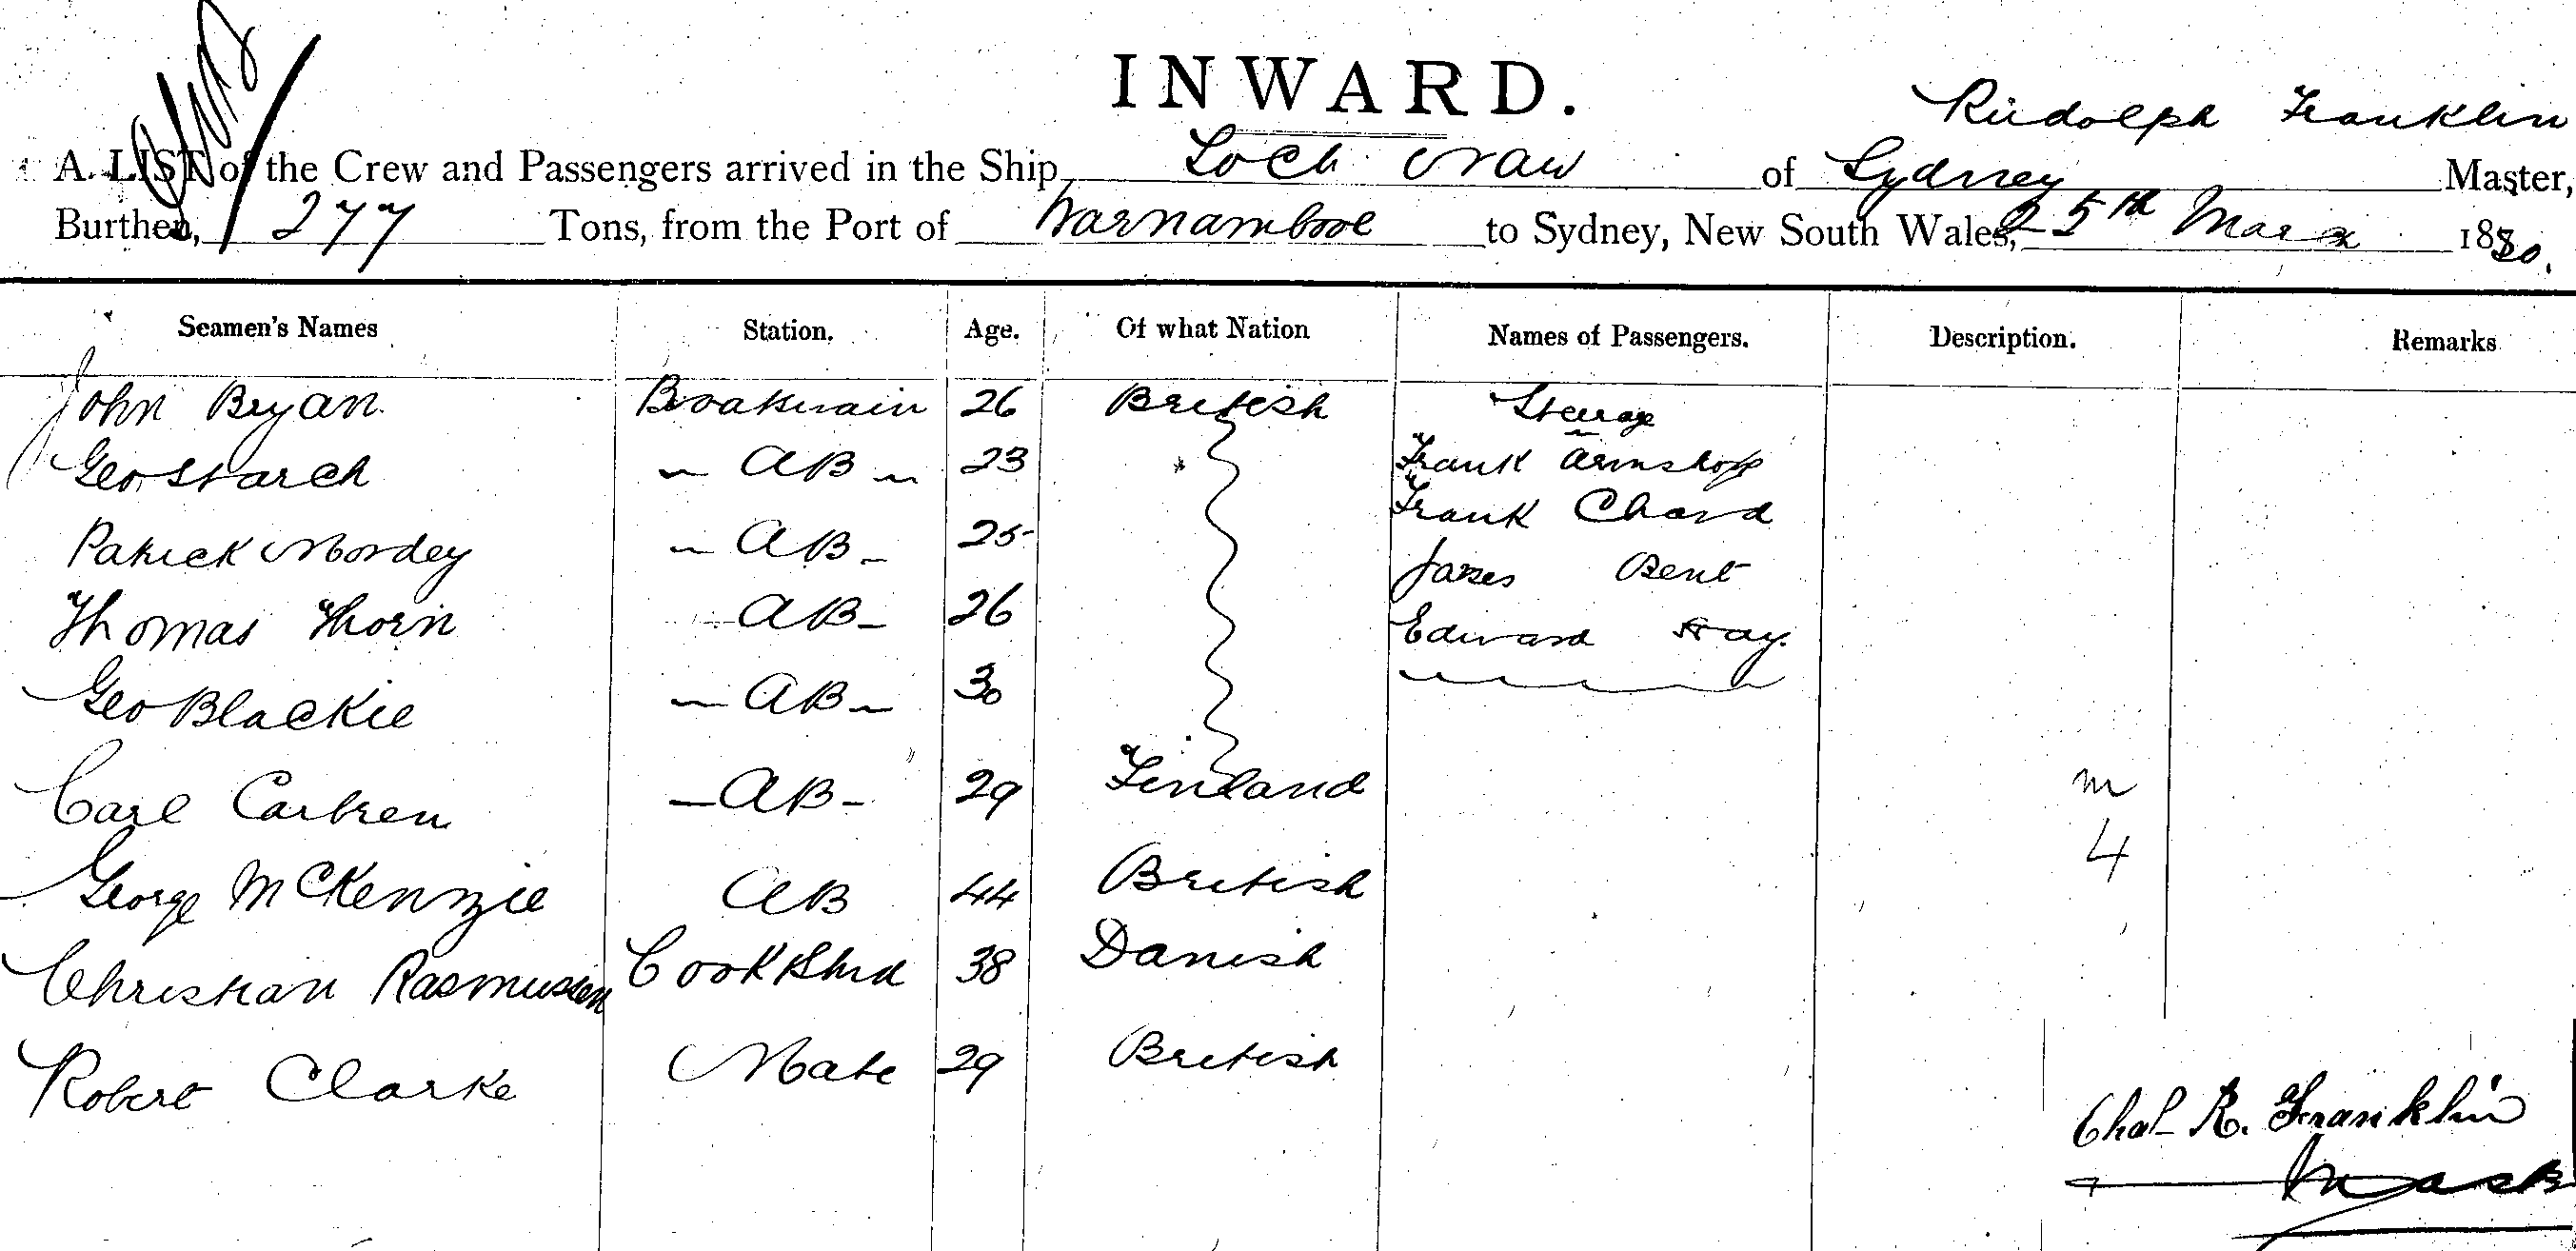 INWARD.
Rudolph Franklin
A LIST of the Crew and Passengers arrived in the Ship Loch of Sydney Master,
Burthen, 277 Tons, from the Port of Warnambool to Sydney, New South Wales, 25th 1880.
Seamen's Names Station. Age. Of what Nation Names of Passengers. Description. Remarks
John Bryan Boatswain 26 British Steerage
Geo Starch AB 23 Frank
Frank Chard
Patrick Mordey AB 25 James Bent
Thomas Thorn AB 26 Edward Hay.
Geo Blackie AB 30
Carl AB 29 Finland m
George McKenzie AB 44 British 4
Christian Rasmussen Cook & Stwd 38 Danish
Robert Clarke Mate 29 British
Chas R. Franklin